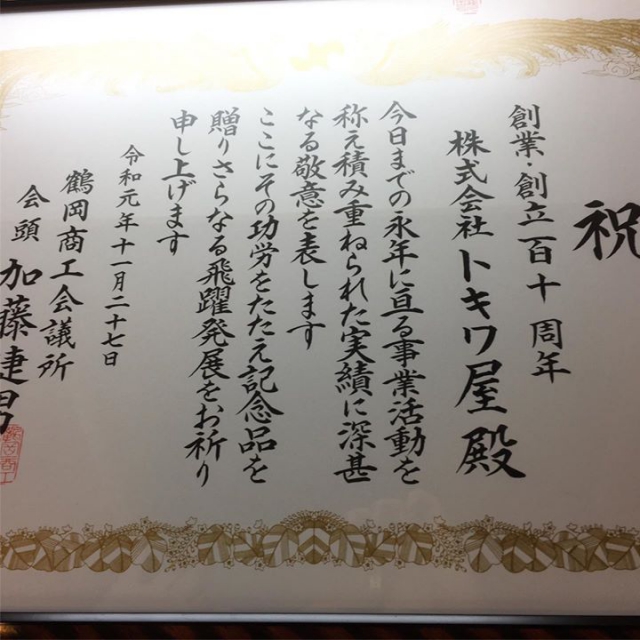 祝
創業・創立百十周年
株式会社トキワ屋殿
今日までの永年に亘る事業活動を
称え積み重ねられた実績に深甚
なる敬意を表します
ここにその功労をたたえ記念品を
贈りさらなる飛躍発展をお祈り
申し上げます
令和元年十一月二十七日
鶴岡商工会議所
会頭 加藤捷男